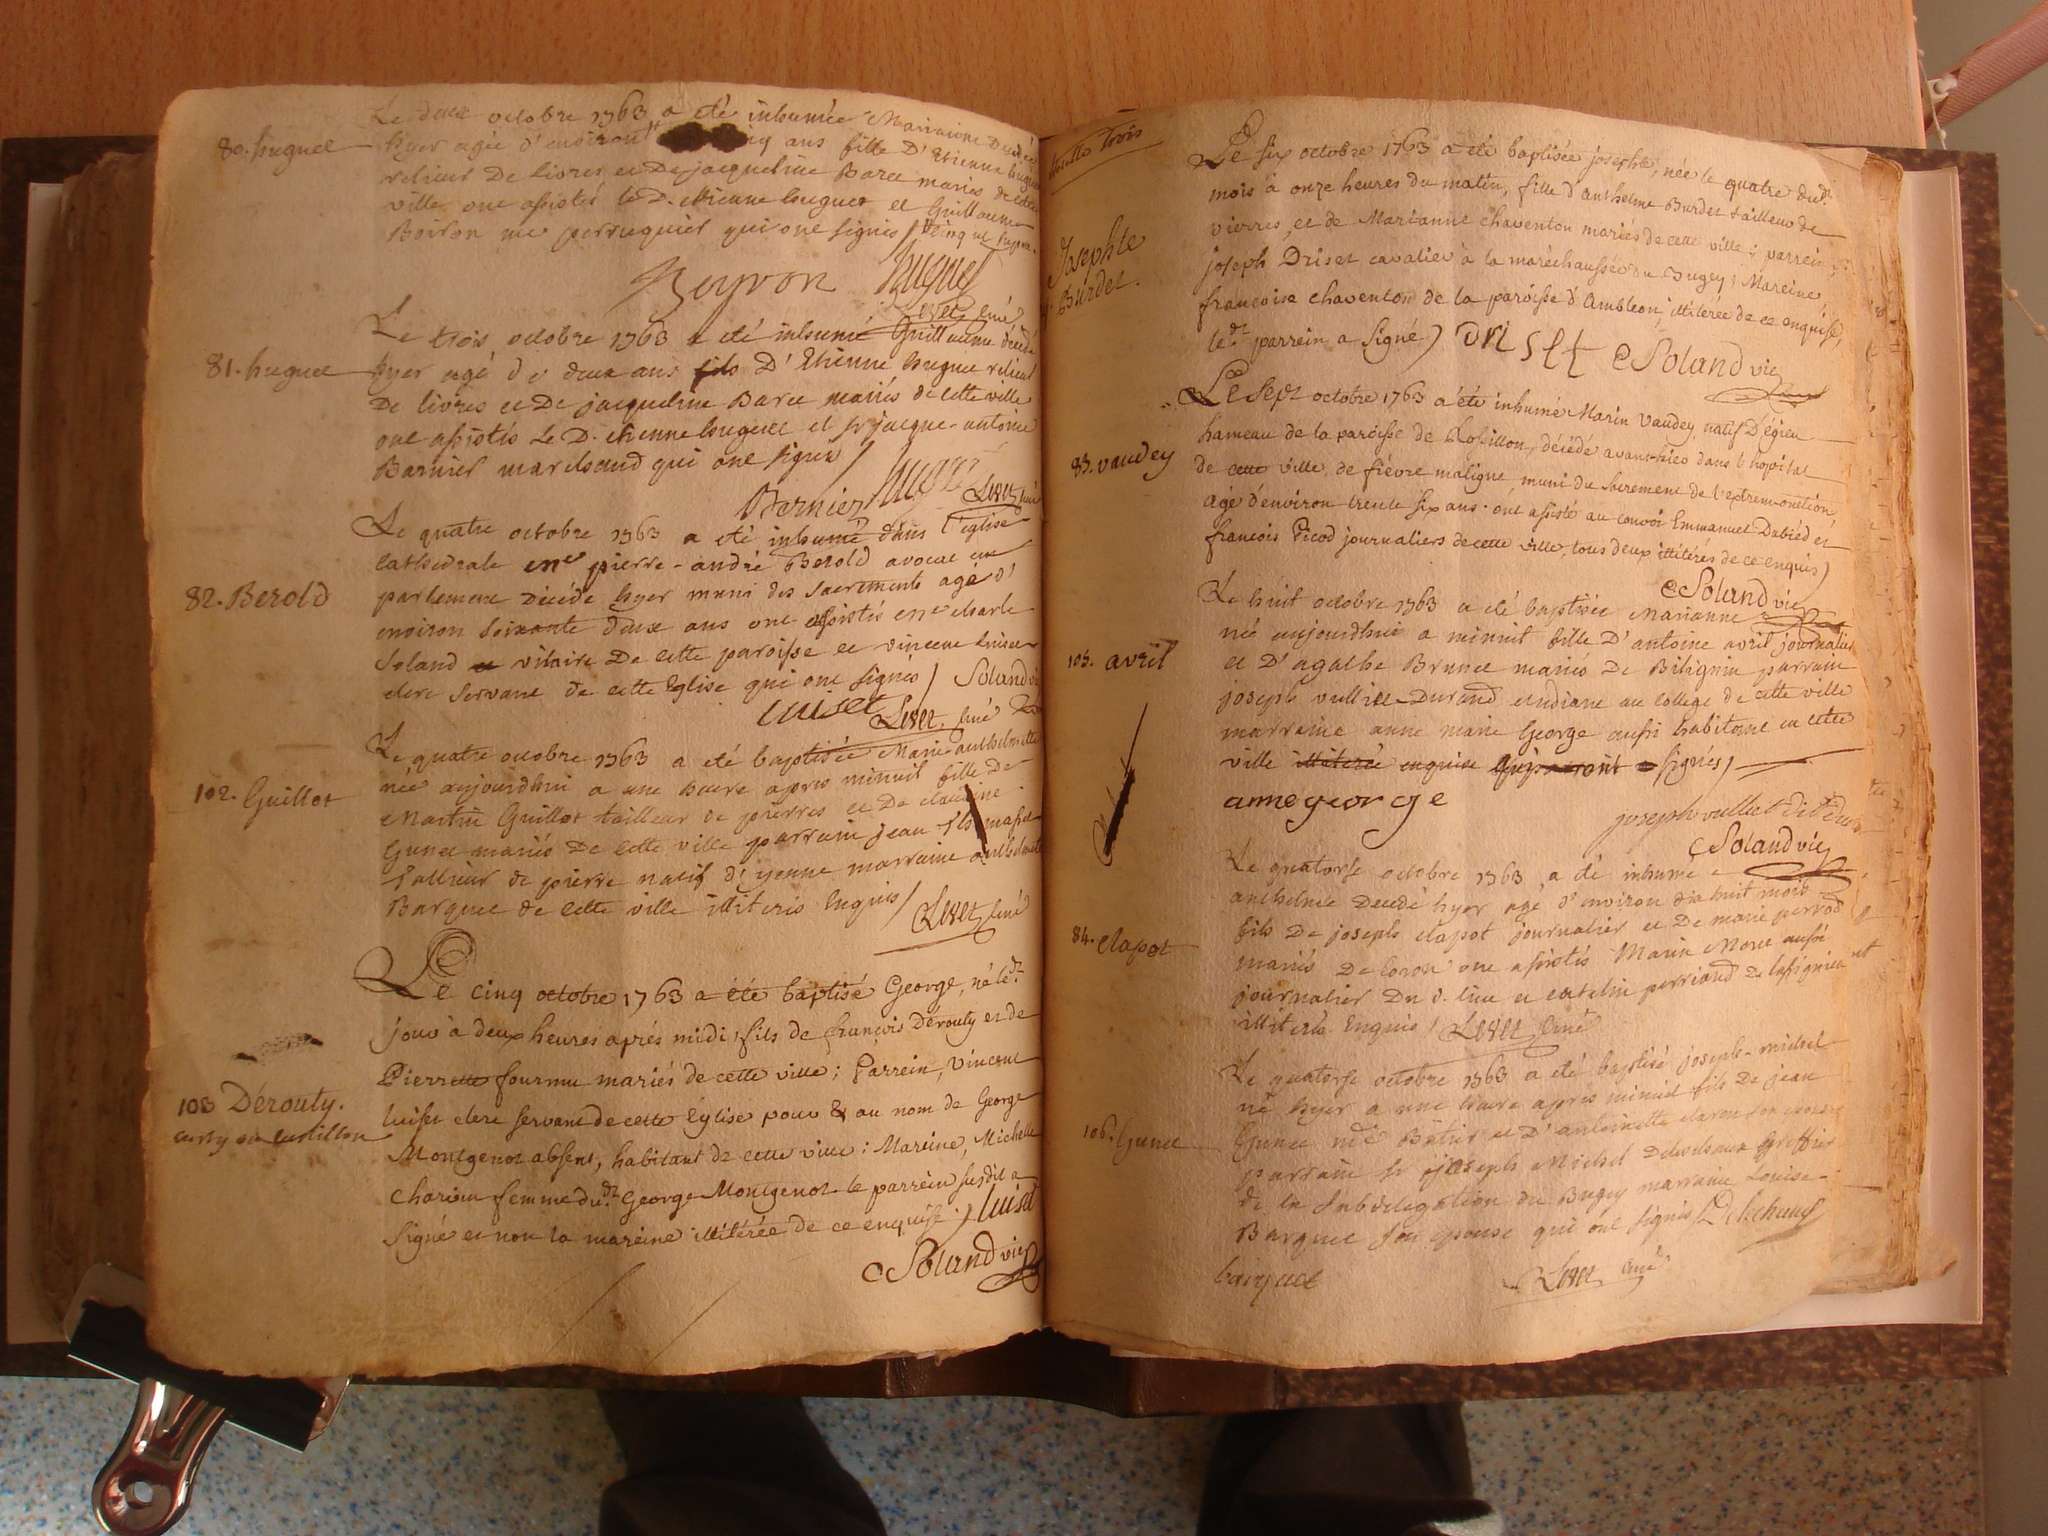 Le deux octobre 1763 a été inhumée Marianne Decedée
80. huguet
hyer agée d'environ ans fille D'Etienne huguet
relieur De livres et De jacqueline Baret mariés de cette
ville ont assistés le D. etienne huguet et Guillaume
Boiron me perruquier qui ont signés
Beyron huguet
Levet curé
Le trois octobre 1763 a été inhumé Guillaume décédé
81. huguet
hyer agé de deux ans fils D'Etienne huguet relieur
De livres et De jacqueline Baret mariés de cette ville
ont assistés Le D. etienne huguet et sr jacque-antoine
Barnier marchand qui ont signés
Bernier hugue Levet curé
Le quatre octobre 1763 a été inhumé dans l'eglise
cathedrale me pierre-andré Berold avocat en
82. Berold
parlement Décédé hyer muni des sacrements agé d'
environ soixante deux ans ont assistés me charle
Soland vicaire De cette paroisse et vincent luiset
clerc servant de cette Eglise qui ont signés / Soland vic
luiset Levet curé
Le quatre octobre 1763 a été baptisée Marie-anthelmette
née aujourdhui a une heure apres minuit fille De
102. Guillot
Martin Guillot tailleur de pierres et De claudine
Gunet mariés De cette ville parrain jean
Tallieur de pierre natif d'yenne marraine anthelmette
Barquet de cette ville illiteris Enquis /
Levet curé
Le cinq octobre 1763 a été baptisé George, né led.t
jour à deux heures aprés midi, fils de francois Dérouty et de
Pierrette fournu mariés de cette ville ; Parrein, Vincent
103 Dérouty.
luiset clerc servant de cette Eglise pour & au nom de George
Montgenot absent, habitant de cette ville : Mareine, Michelle
Charion femme dud.t George Montgenot. le parrein susdit a
Signé et non la mareine illitérée de ce enquise. / luiset
Soland vic
Le six octobre 1763 a été baptisée josephte, née le quatre dud.t
mois à onze heures du matin, fille d'anthelme Burdet tailleur de
pierres, et de Marianne chaventon mariés de cette ville ; parrein,
Josephte
Burdet.
joseph Driset cavalier à la maréchaussée du Bugey ; Mareine,
francoise chaventon de la paroisse d'Ambleon, illitérée de ce enquise,
le d.t parrein a signé) driset Soland vic
Le Sept octobre 1763 a été inhumé Marin Vaudey, natif D'égieu
hameau de la paroisse de Rossillon, décédé avant-hier dans l'hopital
83. vaudey
de cette ville, de fiévre maligne, muni du sacrement de l'extrem-onction,
agé d'environ trente six ans. ont assisté au convoi Emmanuel Dubiéd et
francois Picod journaliers de cette ville, tous deux illitérés de ce enquis)
Soland vic
Le huit octobre 1763 a été baptisée Marianne
née aujourdhui a minuit fille D'antoine avril journalier
105. avril
et D'agathe Brunet mariés De Bilignin parrain
joseph vulliet-Durand etudiant au college de cette ville
marraine anne marie George aussi habitante en cette
ville illiterée enquise signés /
anne george
joseph vulliet dit Durand
Soland vic
Le quatorse octobre 1763 a été inhumé
anthelme Decedé hyer agé d'environ dix huit mois
84. clapot
fils De joseph clapot journalier et De marie perrod
mariés De Coron ont assistés Marin Moret aussi
journalier Du d. lieu et catelin perriand de lassignieu
illiterés Enquis / Levet Curé
Le quatorse octobre 1763 a été baptisé joseph-michel
né hyer a une heure apres minuit fils De jean
106. Gunet
Gunet me Batier et D'antoinette
parrain sr joseph Michel Greffier
de la subdelegation du Bugey marraine Louise
Barquet son epouse qui ont signés
barquet
Levet curé